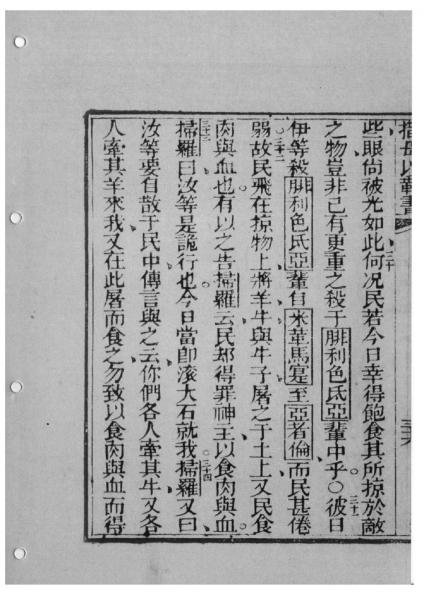 些眼尙被光如此何況民若今日幸得飽食其所掠於敵
三十
之物豈非已有更重之殺于腓利色氐亞輩中乎○彼日
三十一
伊等殺腓利色氐亞輩自米革馬寔至亞者倫而民甚倦
三十二
弱故民飛在掠物上將羊牛與牛子屠之于土上又民食
肉與血也有以之告掃羅云民却得罪神主以食肉與血
三十三
掃羅曰汝等是詭行也今日當卽滚大石就我掃羅又曰
三十四
汝等要自散于民中傳言與之云你們各人牽其牛又各
人牽其羊來我又在此屠而食之勿致以食肉與血而得